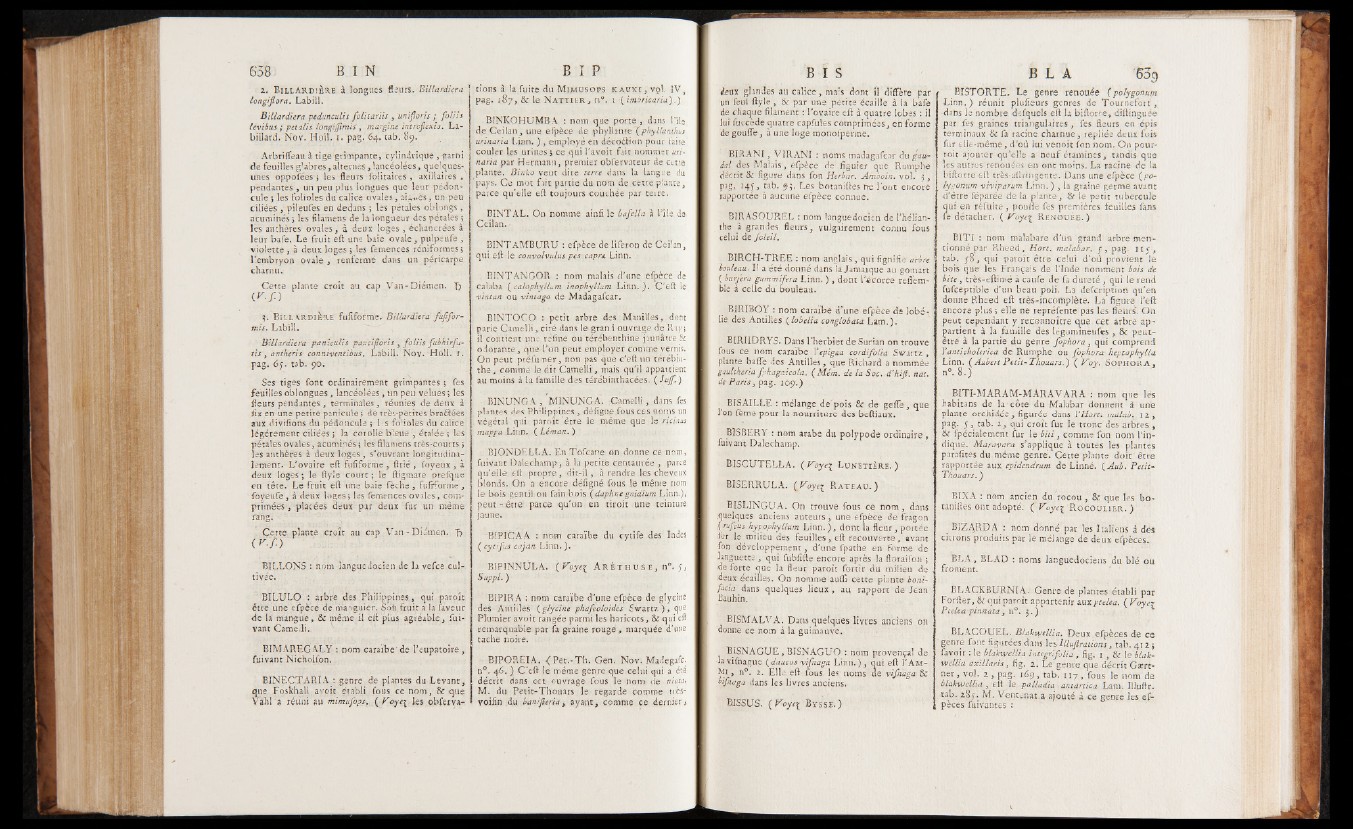 658 B I N
2. BILLARDIÈRE à longues fleurs. Billardiera
longiflora. Labill.
Billardiera pedunculis solitariis, unifloris ; foliis
levibus ; petalis longissimis, margine introflexis. La-
billard. Nov. Holl. 1. pag. 64. tab. 89.
Arbrisseau à tige grimpante, cylindrique, garni
de feuilles glabres, alternes, lancéolées, quelques-
unes opposées ; les fleurs solitaires, axillaires,
pendantes, un peu plus longues que leur pédon-
cule ; les folioles du calice ovales, un peu
ciliées, pileuses en dedans ; les pétales oblongs,
acuminés ; les filamens de la longueur des pétales ;
les anthères ovales, à deux loges, échancrées à
leur base. Le fruit est une baie ovale, pulpeuse,
violette, à deux loges ; les semences réniformes ;
l'embryon ovale, renfermé dans un péricarpe
charnu.
Cette plante croît au cap Van-Diémen. ♄
(V. f.)
3. BILLARDIÈRE fusiforme. Billardiera fusifor-
mis. Labill.
Billardiera paniculis paucifloris, foliis subhirsu-
tis, antheris conniventibus. Labill. Nov. Holl. 1.
pag. 65. tab. 90.
Ses tiges sont ordinairement grimpantes ; ses
feuilles oblongues, lancéolées, un peu velues ; les
fleurs pendantes, terminales, réunies de deux à
six en une petite panicule ; de très-petites bractées
aux divisions du pédoncule ; les folioles du calice
légérement ciliées ; la corolle bleue, étalée ; les
pétales ovales, acuminés ; les filamens très-courts ;
les anthères à deux loges, s'ouvrant longitudina-
lement. L'ovaire est fusiforme, strié, soyeux, à
deux loges ; le style court ; le stigmate presque
en tête. Le fruit est une baie sèche, fusiforme,
soyeuse, à deux loges ; les semences ovales, com-
primées, placées deux par deux sur un même
rang.
Cette plante croît au cap Van-Diémen. ♄
(V. f.)
BILLONS : nom languedocien de la vesce cul-
tivée.
BILULO : arbre des Philippines, qui paroît
être une espèce de manguier. Son fruit a la saveur
de la mangue, & même il est plus agréable, sui-
vant Camelli.
BIMAREGALY : nom caraïbe de l'eupatoire,
suivant Nicholson.
BINECTARIA : genre de plantes du Levant,
que Foskhall avoit établi sous ce nom, & que
Vahl a réuni au mimusops. (Voyez les observa-
B I P
tions à la suite du MIMUSOPS KAUKI, vol. IV,
pag. 187, & le NATTIER, n°. 1 (imbricaria).)
BINKOHUMBA : nom que porte, dans l'île
de Ceilan, une espèce de phyllante (phyllanthus
urinaria Linn.), employé en décoction pour faire
couler les urines ; ce qui l'avoit fait nommer uri-
naria par Hermann, premier observateur de cette
plante. Binko veut dire terre dans la langue du
pays. Ce mot fait partie du nom de cette plante,
parce qu'elle est toujours couchée par terre.
BINTAL. On nomme ainsi le basella à l'île de
Ceilan.
BINTAMBURU : espèce de liseron de Ceilan,
qui est le convolvulus pes capræ Linn.
BINTANGOR : nom malais d'une espèce de
calaba (calophyllum inophyllum Linn.). C'est le
vintan ou vintago de Madagascar.
BINTOCO : petit arbre des Manilles, dont
parle Camelli, cité dans le grand ouvrage de Ray ;
il contient une résine ou térébenthine jaunâtre &
odorante, que l'on peut employer comme vernis.
On peut présumer, non pas que c'est un térébin-
the, comme le dit Camelli, mais qu'il appartient
au moins à la famille des térébinthacées. (Juss.)
BINUNGA, MINUNGA. Camelli, dans ses
plantes des Philippines, désigne sous ces noms un
végétal qui paroît être le même que le ricinus
mappa Linn. (Léman.)
BIONDELLA. En Toscane on donne ce nom,
suivant Dalechamp, à la petite centaurée, parce
qu'elle est propre, dit-il, à rendre les cheveux
blonds. On a encore désigné sous le même nom
le bois gentil ou sain bois (daphne gnidium Linn.),
peut-être parce qu'on en tiroit une teinture
jaune.
BIPICAA : nom caraïbe du cytise des Indes
(cytisus cajan Linn.).
BIPINNULA. (Voyez ARÉTHUSE, n°. 5,
Suppl.)
BIPIRA : nom caraïbe d'une espèce de glycine
des Antilles (glycine phaseoloides Swartz), que
Plumier avoit rangée parmi les haricots, & qui est
remarquable par sa graine rouge, marquée d'une
tache noire.
BIPOREIA. (Pet.-Th. Gen. Nov. Madagasc.
n°. 46.) C'est le même genre que celui qui a été
décrit dans cet ouvrage sous le nom de
M. du Petit-Thouars le regarde comme très-
voisin du banisteria, ayant, comme ce dernier,
B I S
deux glandes au calice, mais dont il diffère par
un seul style, & par une petite écaille à la base
de chaque filament : l'ovaire est à quatre lobes : il
lui succède quatre capsules comprimées, en forme
de gousse, à une loge monosperme.
BIRANI, VIRANI : noms madagascar du gau-
dal des Malais, espèce de figuier que Rumphe
décrit & figure dans son Herbar. Amboin. vol. 3,
pag. 145, tab. 93. Les botanistes ne l'ont encore
rapportée à aucune espèce connue.
BIRASOUREL : nom languedocien de l'hélian-
the à grandes fleurs, vulgairement connu sous
celui de soleil.
BIRCH-TREE : nom anglais, qui signifie arbre
bouleau. Il a été donné dans la Jamaïque au gomart
(bursera gummifera Linn.), dont l'écorce ressem-
ble à celle du bouleau.
BIRIBOY : nom caraïbe d'une espèce de lobé-
lie des Antilles (lobelia conglobata Lam.).
BIRIIDRYS. Dans l'herbier de Surian on trouve
sous ce nom caraïbe l'epigæa cordifolia Swartz,
plante basse des Antilles, que Richard a nommée
gaultheria sphagnicola. (Mém. de la Soc. d'hist. nat.
de Paris, pag. 109.)
BISAILLE : mélange de pois & de gesse, que
l'on sème pour la nourriture des bestiaux.
BISBERY : nom arabe du polypode ordinaire,
suivant Dalechamp.
BISCUTELLA. (Voyez LUNETIÈRE.)
BISERRULA. (Voyez RATEAU.)
BISLINGUA. On trouve sous ce nom, dans
quelques anciens auteurs, une espèce de fragon
(ruscus hypophyllum Linn.), dont la fleur, portée
sur le milieu des feuilles, est recouverte, avant
son développement, d'une spathe en forme de
languette, qui subsiste encore après la floraison ;
de sorte que la fleur paroît sortir du milieu de
deux écailles. On nomme aussi cette plante boni-
facia dans quelques lieux, au rapport de Jean
Bauhin.
BISMALVA. Dans quelques livres anciens on
donne ce nom à la guimauve.
BISNAGUE, BISNAGUO : nom provençal de
la visnague (daucus visnaga Linn.), qui est l'AM-
MI, n°. 2. Elle est sous les noms de visnaga &
bisnaga dans les livres anciens.
BISSUS. (Voyez BYSSE.)
B L A 639
BISTORTE. Le genre renouée (polygonum
Linn.) réunit plusieurs genres de Tournefort,
dans le nombre desquels est la bistorte, distinguée
par ses graines triangulaires, ses fleurs en épis
terminaux & sa racine charnue, repliée deux fois
sur elle-même, d'où lui venoit son nom. On pour-
roit ajouter qu'elle a neuf étamines, tandis que
les autres renouées en ont moins. La racine de la
bistorte est très-astringente. Dans une espèce (po-
lygonum viviparum Linn.), la graine germe avant
d'être séparée de la plante, & le petit tubercule
qui en résulte, pousse ses premières feuilles sans
se détacher. (Voyez RENOUÉE.)
BITI : nom malabare d'un grand arbre men-
tionné par Rheed, Hort. malabar. 5, pag. 115,
tab. 58, qui paroît être celui d'où provient le
bois que les Français de l'Inde nomment bois de
bite, très-estimé à cause de sa dureté, qui le rend
susceptible d'un beau poli. La description qu'en
donne Rheed est très-incomplète. La figure l'est
encore plus ; elle ne représente pas les fleurs. On
peut cependant y reconnoître que cet arbre ap-
partient à la famille des légumineuses, & peut-
être à la partie du genre sophora, qui comprend
l'anticholerica de Rumphe ou sophora heptaphylla
Linn. (Aubert Petit-Thouars.) (Voy. SOPHORA,
n°. 8.)
BITI-MARAM-MARAVARA : nom que les
habitans de la côte du Malabar donnent à une
plante orchidée, figurée dans l'Hort. malab. 12,
pag. 5, tab. 2, qui croît sur le tronc des arbres,
& spécialement sur le biti, comme son nom l'in-
dique. Maravara s'applique à toutes les plantes
parasites du même genre. Cette plante doit être
rapportée aux epidendrum de Linné. (Aub. Petit-
Thouars.)
BIXA : nom ancien du rocou, & que les bo-
tanistes ont adopté. (Voyez ROCOULIER.)
BIZARDA : nom donné par les Italiens à des
citrons produits par le mélange de deux espèces.
BLA, BLAD : noms languedociens du blé ou
froment.
BLACKBURNIA. Genre de plantes établi par
Forster, & qui paroît appartenir aux ptelea. (Voyez
Ptelea pinnata, n°. 3.)
BLACOUEL. Blakwellia. Deux espèces de ce
genre sont figurées dans les Illustrations, tab. 412 ;
savoir : le blakwellia integrifolia, fig. 1, & le blak-
wellia axillaris, fig. 2. Le genre que décrit Gært-
ner, vol. 2, pag. 169, tab. 117, sous le nom de
blakwellia, est le palladia antartica Lam. Illustr.
tab. 285. M. Ventenat a ajouté à ce genre les es-
pèces suivantes :